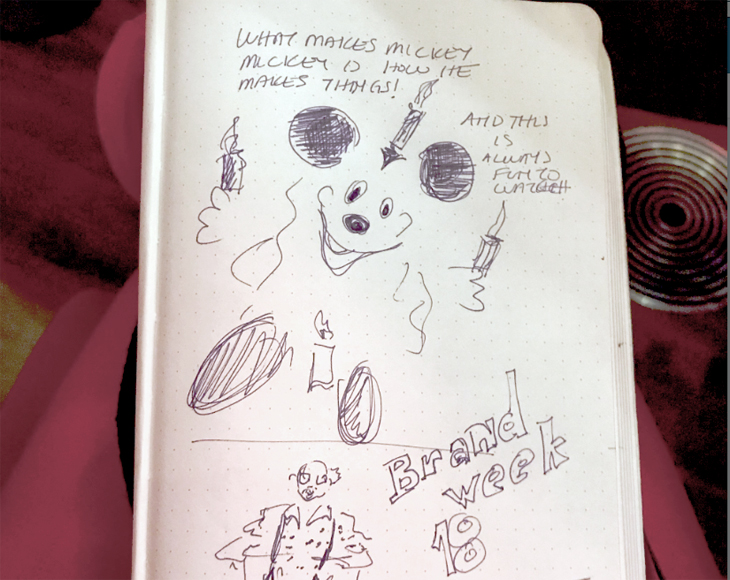 WHAT MAKES MICKEY
MICKEY IS HOW HE
MAKES THINGS!
AND THIS
IS
ALWAYS
FUN TO
WATCH
Brand
week
18